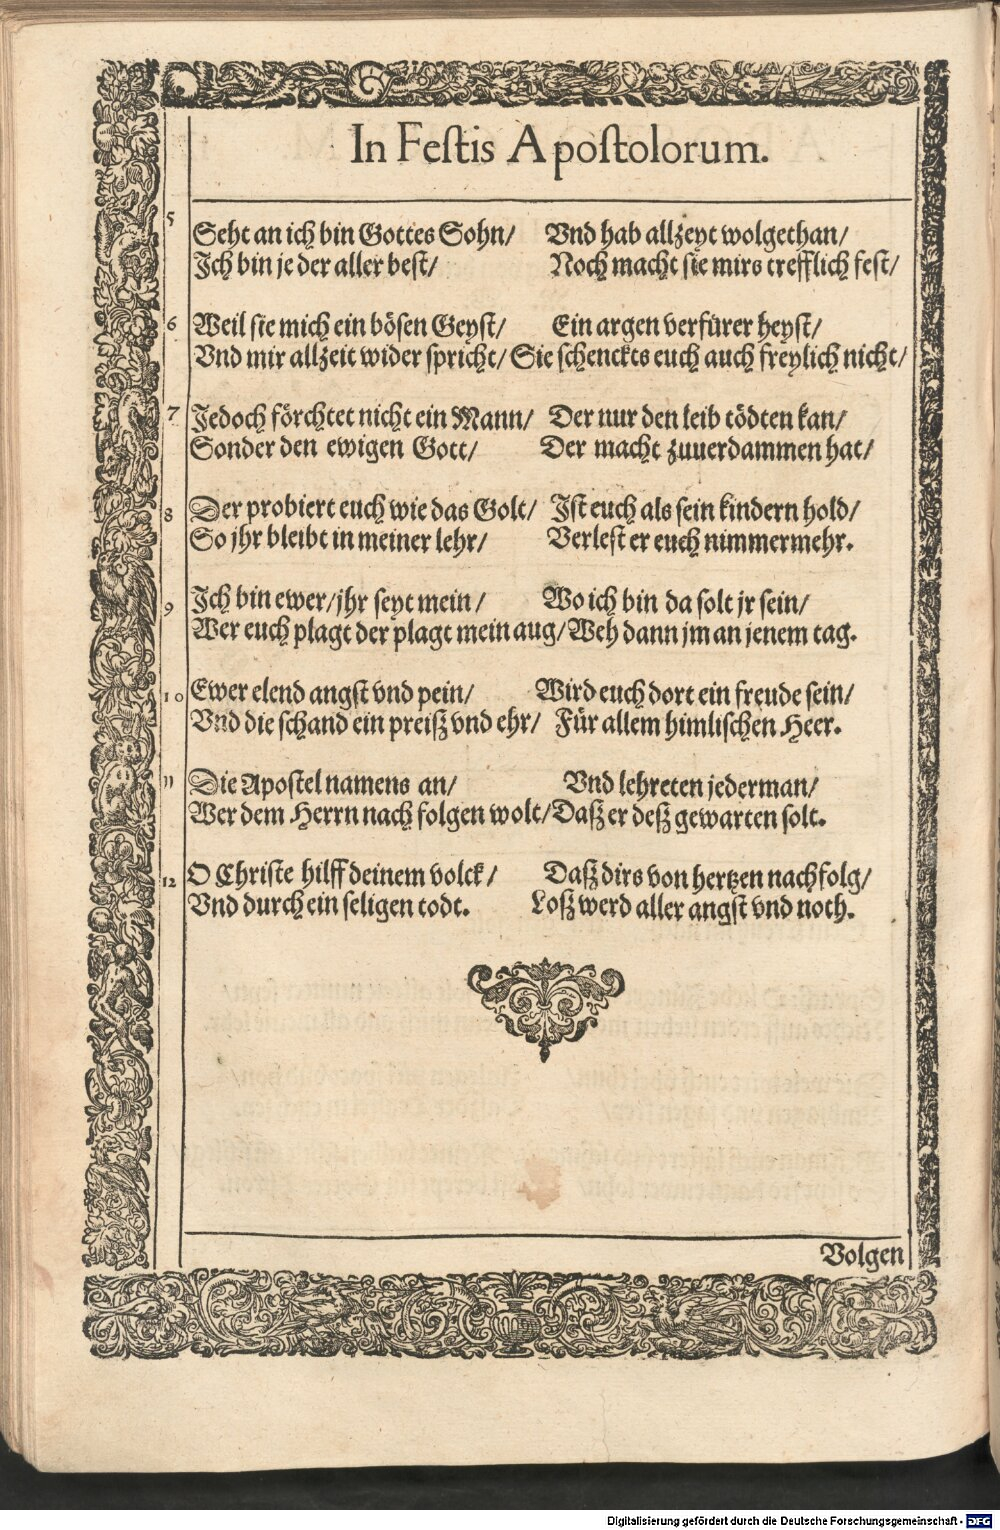 In Festis Apostolorum.
5 Seht an ich bin Gottes Sohn/ Vnd hab allzeyt wolgethan/
Ich bin je der aller best/ Noch macht sie mirs trefflich fest/
6 Weil sie mich ein bösen Geyst/ Ein argen verfürer heyst/
Vnd mir allzeit wider spricht/ Sie schenckts euch auch freylich nicht/
7 Jedoch förchtet nicht ein Mann/ Der nur den leib tödten kan/
Sonder den ewigen Gott/ Der macht zuuerdammen hat/
8 Der probiert euch wie das Golt/ Ist euch als sein kindern hold/
So jhr bleibt in meiner lehr/ Verlest er euch nimmermehr.
9 Ich bin ewer/jhr seyt mein/ Wo ich bin da solt jr sein/
Wer euch plagt der plagt mein aug/ Weh dann jm an jenem tag.
10 Ewer elend angst vnd pein/ Wird euch dort ein freude sein/
Vnd die schand ein preiß vnd ehr/ Für allem himlischen Heer.
11 Die Apostel namens an/ Vnd lehreten jederman/
Wer dem Herrn nach folgen wolt/ Daß er deß gewarten solt.
12 O Christe hilff deinem volck/ Daß dirs von hertzen nachfolg/
Vnd durch ein seligen todt. Loß werd aller angst vnd noth.
Volgen
Digitalisierung gefördert durch die Deutsche Forschungsgemeinschaft - DFG